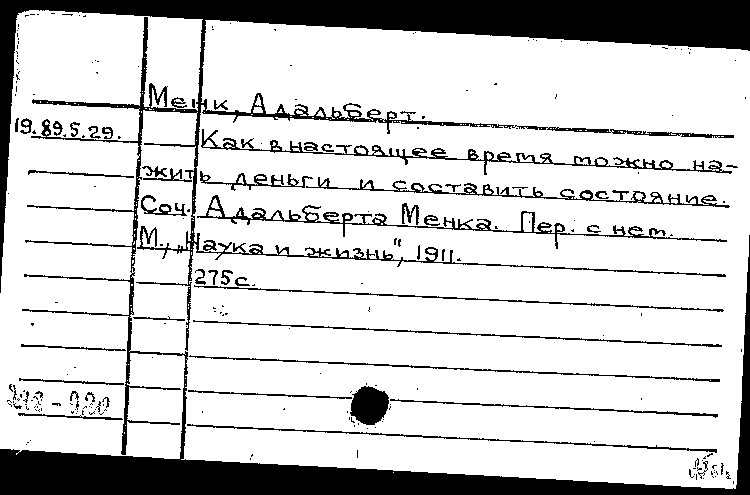 Менк, Адальберт.
19.89.5.29.
Как в настоящее время можно на-
жить деньги и составить состояние.
Соч. Адальберта Менка. Пер. с нем.
М., „Наука и жизнь", 1911.
275 с.
298-920